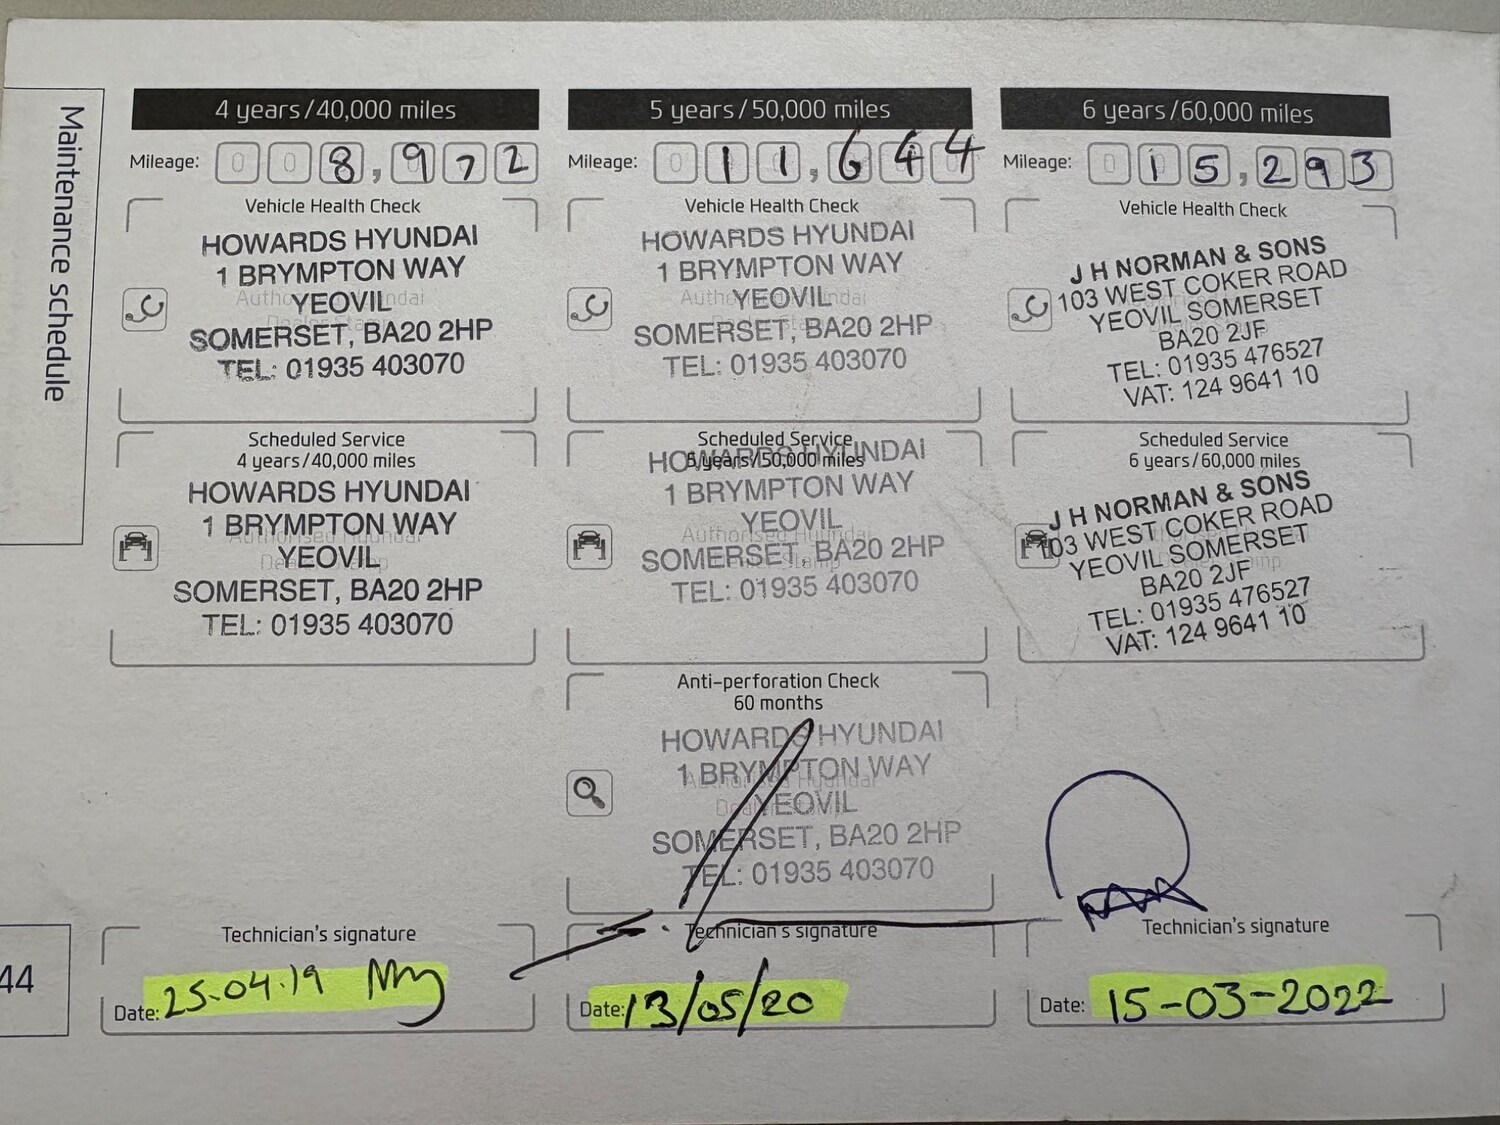 Maintenance schedule
4 years/40,000 miles
Mileage: 0 0 8,9 7 2
Vehicle Health Check
HOWARDS HYUNDAI
1 BRYMPTON WAY
YEOVIL
SOMERSET, BA20 2HP
TEL: 01935 403070
Authorised Hyundai
Dealer Stamp
Scheduled Service
4 years/40,000 miles
HOWARDS HYUNDAI
1 BRYMPTON WAY
YEOVIL
SOMERSET, BA20 2HP
TEL: 01935 403070
Authorised Hyundai
Dealer Stamp
Technician's signature
Date: 25-04-19
5 years/50,000 miles
Mileage: 0 1 1,6 4 4
Vehicle Health Check
HOWARDS HYUNDAI
1 BRYMPTON WAY
YEOVIL
SOMERSET, BA20 2HP
TEL: 01935 403070
Authorised Hyundai
Dealer Stamp
Scheduled Service
5 years/50,000 miles
HOWARDS HYUNDAI
1 BRYMPTON WAY
YEOVIL
SOMERSET, BA20 2HP
TEL: 01935 403070
Authorised Hyundai
Dealer Stamp
Anti-perforation Check
60 months
HOWARDS HYUNDAI
1 BRYMPTON WAY
YEOVIL
SOMERSET, BA20 2HP
TEL: 01935 403070
Authorised Hyundai
Dealer Stamp
Technician's signature
Date: 13/05/20
6 years/60,000 miles
Mileage: 0 1 5,2 9 3
Vehicle Health Check
J H NORMAN & SONS
103 WEST COKER ROAD
YEOVIL SOMERSET
BA20 2JF
TEL: 01935 476527
VAT: 124 9641 10
Scheduled Service
6 years/60,000 miles
J H NORMAN & SONS
103 WEST COKER ROAD
YEOVIL SOMERSET
BA20 2JF
TEL: 01935 476527
VAT: 124 9641 10
Technician's signature
Date: 15-03-2022
44